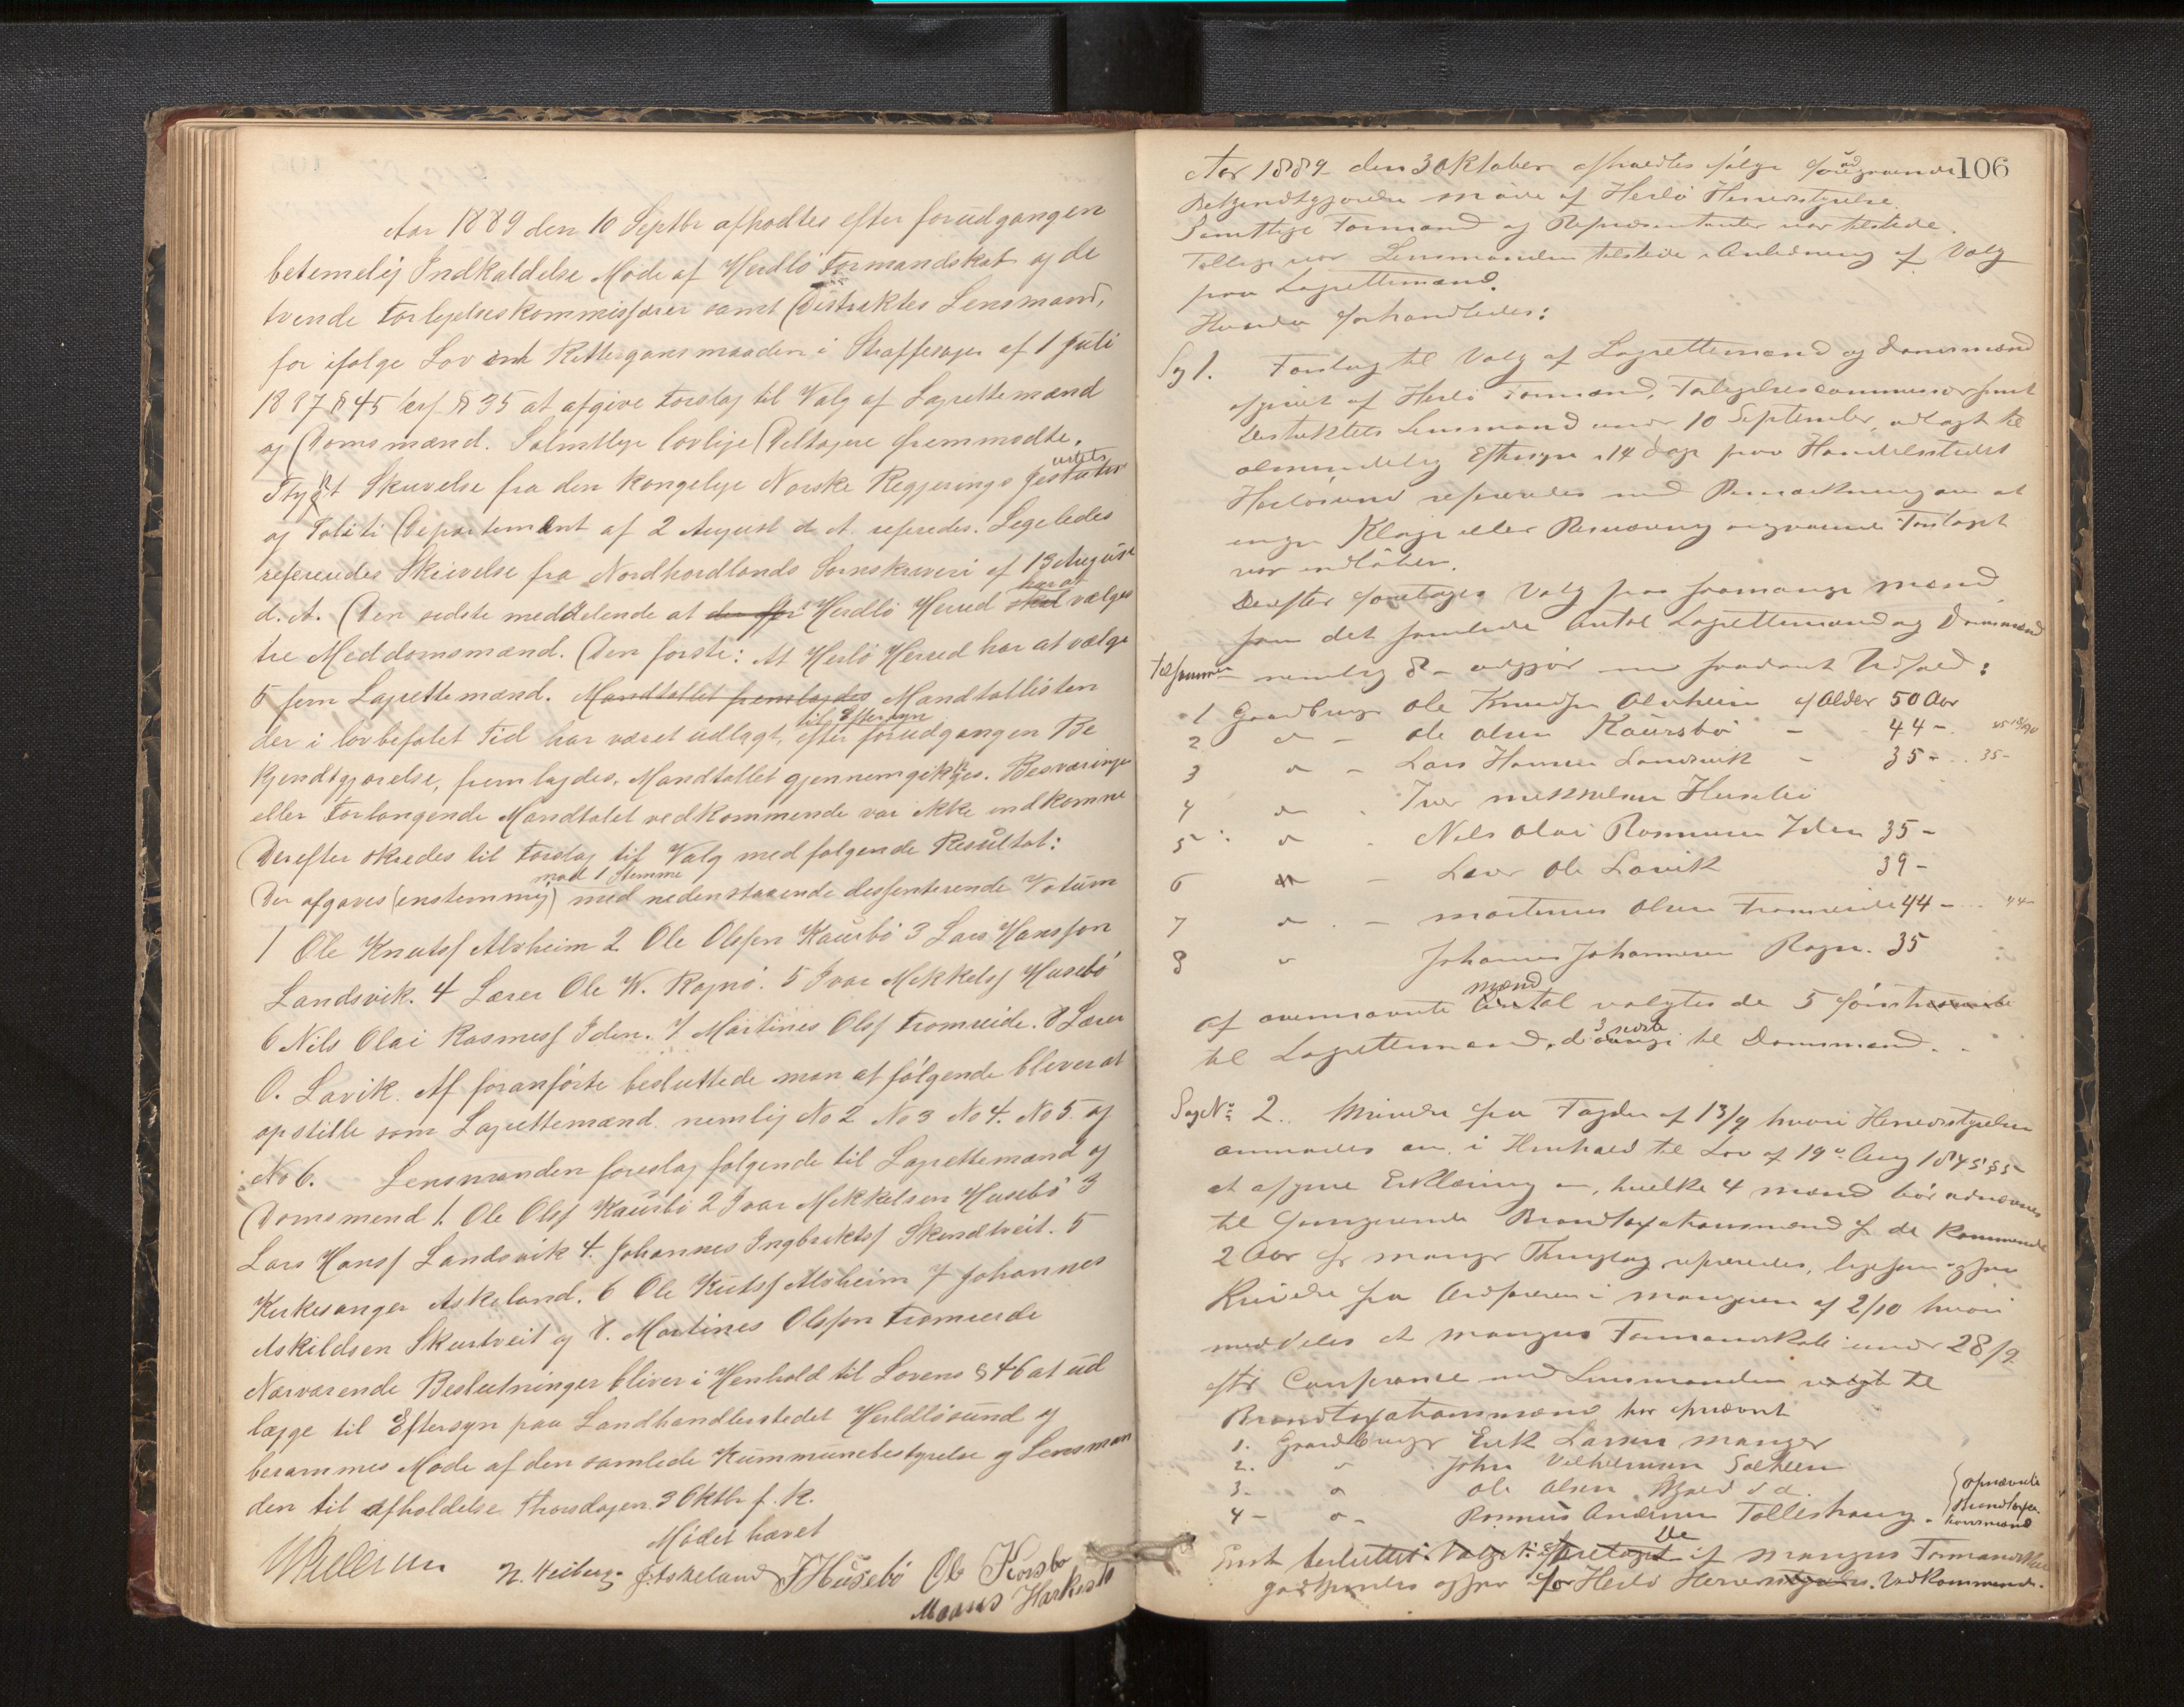 Aar 1889 den 10 Septbr afhodtes efter forudgangen
betemelig Indkaldelse Møde af Herdlø Formandskab og de
tvende Forligelseskommissærer samt Distriktes Lensmand,
for ifølge Lov om Rettergansmaaden i Straffesager af 1 Juli
1887 § 45 jevf § 35 at afgive Forslag til Valg af Lagrettemænd
og Domsmænd. Samtlige lovlige Deltagere fremmødte.
Skrivelse fra den kongelige Norske Regjerings Justits
og Politi Departement af 2 August d. A. referedes. Ligeledes
refereredes Skrivelse fra Nordhordlands Sornskriveri af 13 August
d. A. Den sidste meddelende at Herdlø Herred har at vælge
tre Meddomsmænd. Den første: At Herlø Herred har at vælge
5 fem Lagrettemænd. Mandtallet fremlagdes Mandtallisten
der i lovbefalet Tid har været udlagt, til Eftersyn efter forudgangen Be
kjendtgjørelse, fremlagdes. Mandtallet gjennemgikkes. Besværinger
eller Forlangende Mandtalet vedkommende var ikke indkomne
Derefter skredes til Forslag til Valg med følgende Resultat:
Der afgaves (enstemmig) mod 1 Stemme med nedenstaaende dessenterende Votum
1 Ole Knutsf Alvheim 2 Ole Olssen Kaursbø 3 Lars Hansson
Landsvik. 4 Lærer Ole W. Rognø. 5 Ivar Mikkelsf Husebø
6 Nils Olai Rasmusf Iden. 7 Martines Olsf Fromreide. 8 Lærer
O. Lavik. Af foranførte besluttede man at følgende bliver at
opstille som Lagrettemænd nemlig No 2 No 3 No 4. No 5. og
No 6. Lensmanden foreslog følgende til Lagrettemænd og
Domsmend 1. Ole Olsf Kaursbø 2 Ivar Mikkelsen Husebø 3
Lars Hansf Landsvik 4. Johannes Ingbriktsf Skurdtveit. 5
Kirkesanger Askeland. 6 Ole Knutsf Alvheim 7 Johannes
Askildsen Skurtveit og 8. Martines Olssen Fromreide
Nærværende Beslutninger bliver i Henhold til Lovens § 46 at ud
lægge til Eftersyn paa Landhandlerstedet Herdløsund og
berammes Møde af den samlede Kummunebestyrelse og Lensman
den til afholdelse Thorsdagen 3 Oktbr f. k.
Mødet hævet
N. Heiberg Askeland J Husebø Ole Korsbø
Maans Harkestad
106
Aar 1889 den 3 Oktober afholdtes ifølge forudgaaende
Bekjendtgjørelse møde af Herlø Herredsstyrelse.
Samtlige Formænd og Repræsentanter var tilstede.
Tillige var Lensmanden tilstede i Anledning af Valg
paa Lagrettemænd.
Hvorda forhandledes:
Sag 1. Forslag til Valg af Lagrettemænd og Domsmænd
afgivet af Herlø Formænd, Forligelsescommissær samt
Distriktets Lensmand under 10 September, udlagt til
almindelig Eftersyn i 14 Dage paa Handelsstedet
Herløsund refereredes med Bemærkning om at
ingen Klage eller Besværing angaaende Forslaget
var indløben.
Derefter foretoges Valg paa saamange Mænd
som det samlede Antal Lagrettemænd og Domsmænd
tilsammen nemlig 8 – udgjør med saadant Udfald:
1 Gaardbruger Ole Knudsen Alvheim af Alder 50 Aar
2 do – Ole Olsen Kaursbø – 44 –
3 do – Lars Hansen Landsvik – 35 – 35 –
4 do – Iver Mikkelsen Husebø
5 do – Nils Olai Rasmusen Iden 35 –
6 – Lærer Ole Lavik 39 –
7 do – Martinus Olsen Fromreide 44 – 44 –
8 do Johannes Johannesen Rogn. 35
Af ovennævnte mænd valgtes de 5 første
til Lagrettemænd, de 3 sidste til Domsmænd.
Sag No 2. Skrivelse fra Fogden af 13/9 hvori Herredsstyrelsen
anmodes om i Henhold til Lov af 19de Aug 1845 § 5
at afgive Erklæring om, hvilke 4 Mænd bør udnævnes
til fungerende Brandtaxationsmænd for de kommende
2 Aar for Manger Thinglag, refereredes, ligesom ogsaa
Skrivelse fra Ordføreren i Manger af 2/10 hvori
meddeles at Mangers Formandskab under 28/9
efter Conferance med Lensmanden valgt til
Brandtaxationsmænd har opnævnt
1. Gaardbruger Erik Larsen Manger
2. do John Vilhelmsen Solheim
3. do Ole Olsen
4 – do – Rasmus Andersen Tolleshaug
opnævnte
Brandtaxa
tionsmænd
Enst. besluttet: Valget foretaget De af Mangers Formandskab
godkjendes ogsaa for Herlø Herreds Vedkommende.